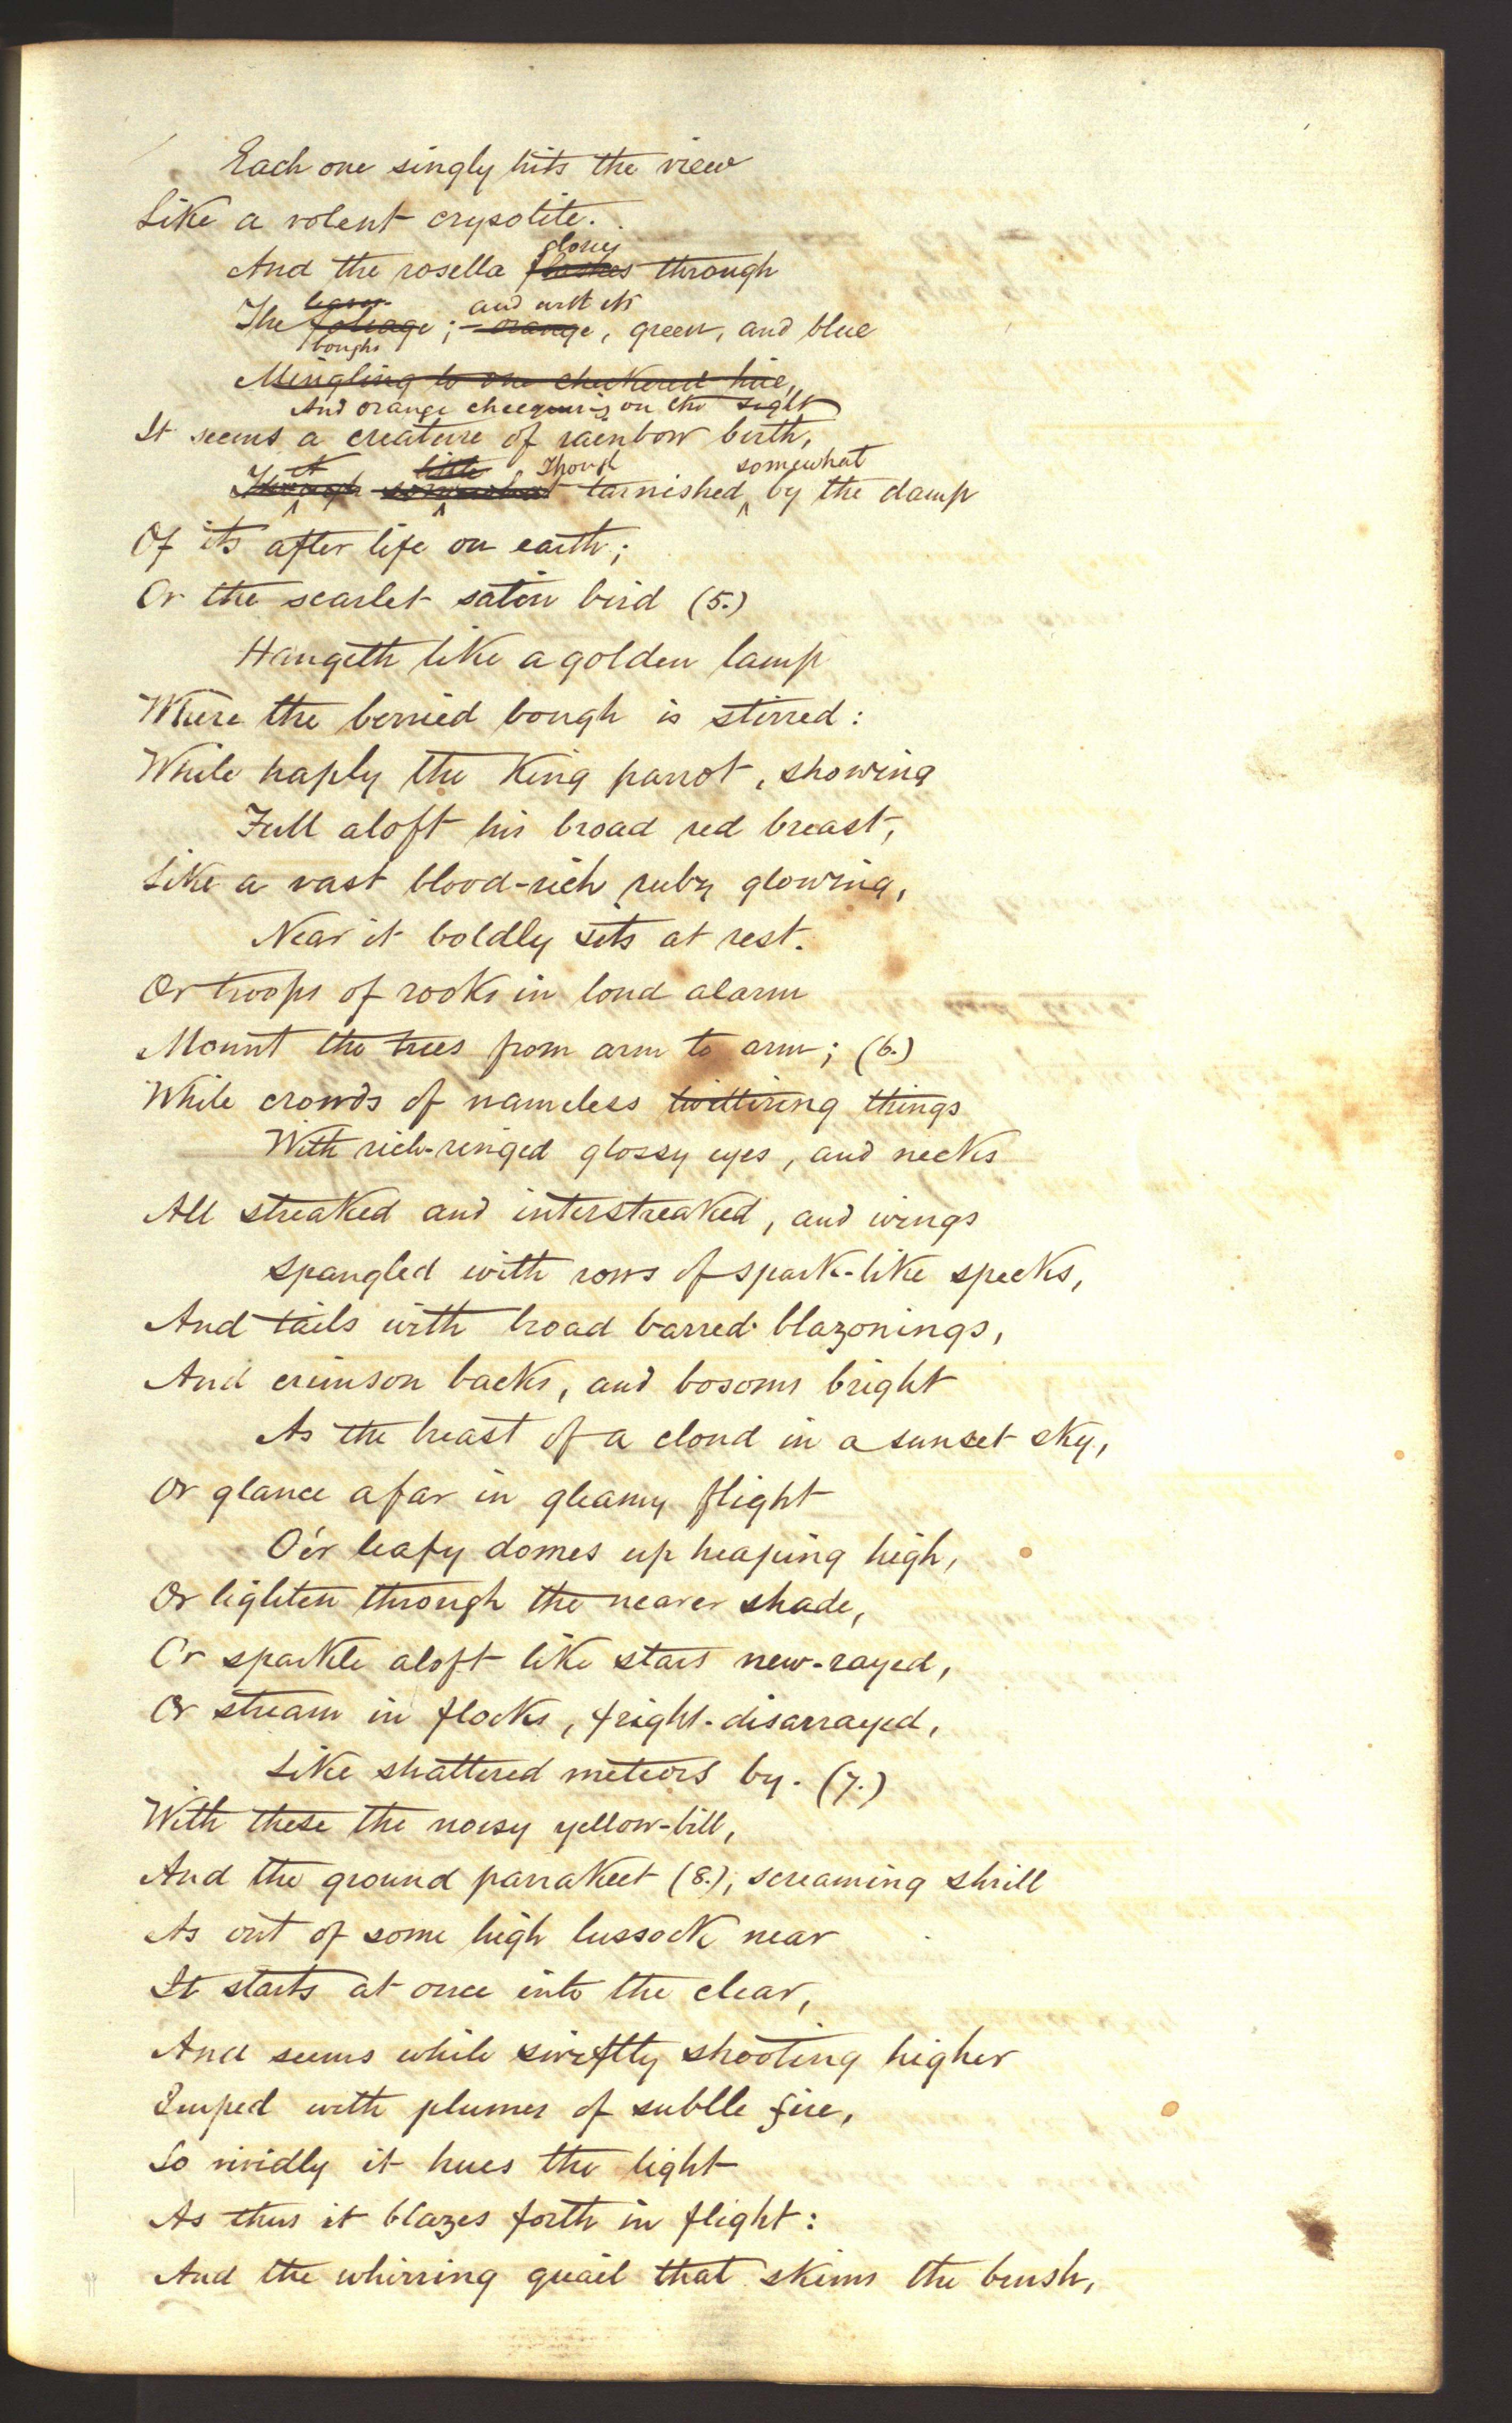 Each one singly hits the view
Like a volent crysolite.
glows
And the rosella flashes through
leaves and with its
The foliage; orange, green, and blue
boughs
Mingling to one checkered hue,
And orange checquering on the sight
It seems a creature of rainbow birth,
little Though somewhat
Though somewhat tarnished by the damp
Of its after life on earth;
Or the scarlet satin bird (5.)
Hangeth like a golden lamp
Where the berried bough is stirred:
While haply the King parrot, showing
Full aloft his broad red breast,
Like a vast blood-rich ruby glowing,
Near it boldly sits at rest.
Or troops of rooks in loud alarm
Mount the trees from arm to arm; (6.)
While crowds of nameless twittering things
With rich-ringed glossy eyes, and necks
All streaked and interstreaked, and wings
Spangled with rows of spark-like specks,
And tails with broad barred blazonings,
And crimson backs, and bosoms bright
As the breast of a cloud in a sunset sky,
Or glance afar in gleamy flight
O'er leafy domes up heaping high,
Or lighten through the nearer shade,
Or sparkle aloft like stars new-rayed,
Or stream in flocks, fright-disarrayed,
Like shattered meteors by. (7.)
With these the noisy yellow-bill,
And the ground parrakeet (8.), screaming shrill
As out of some high tussock near
It starts at once into the clear,
And seems while swiftly shooting higher
Imped with plumes of subtle fire,
So vividly it hues the light
As thus it blazes forth in flight:
And the whirring quail that skims the brush,